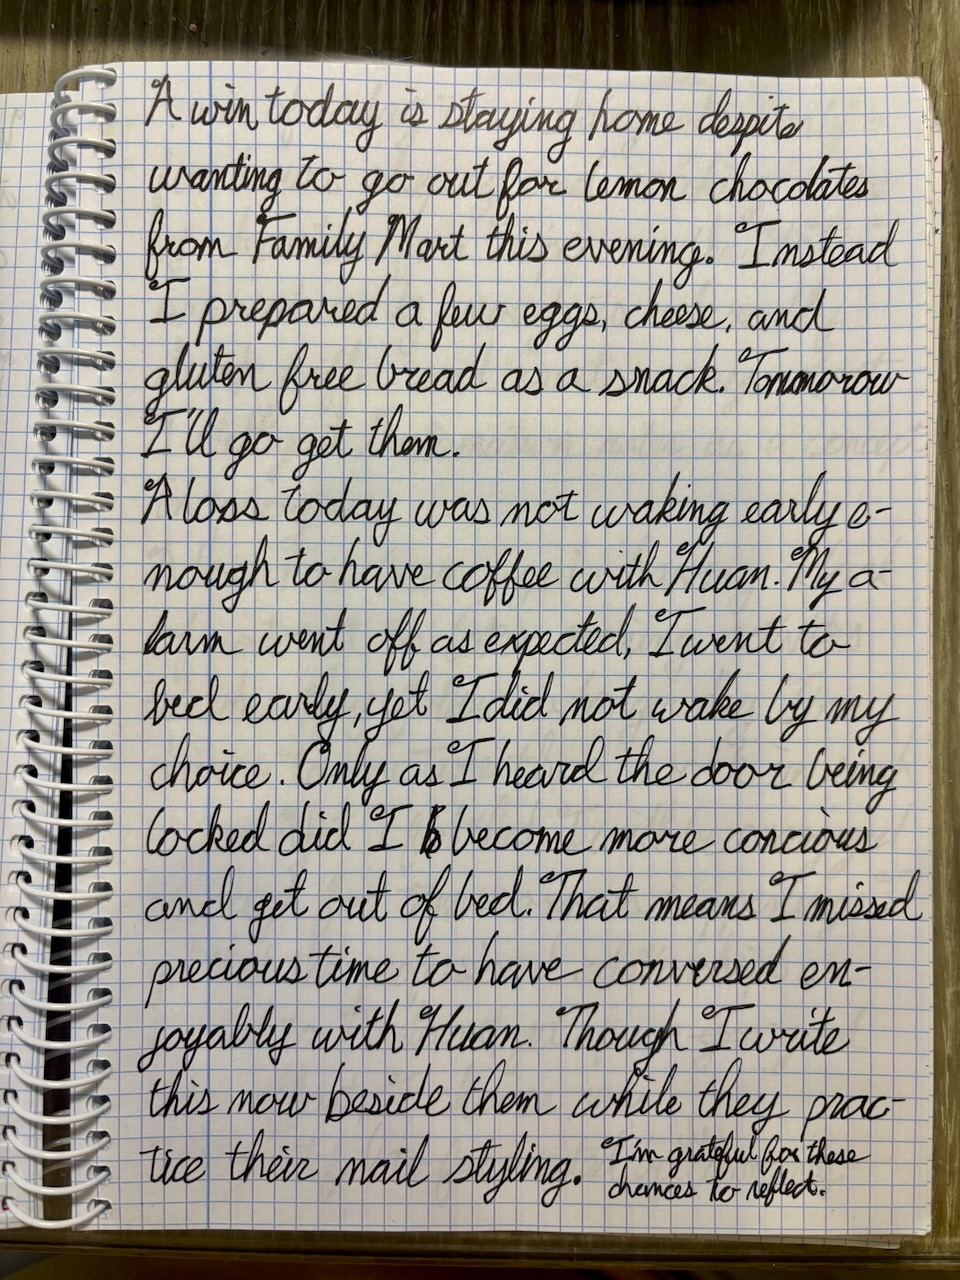 A win today is staying home despite
wanting to go out for lemon chocolates
from Family Mart this evening. Instead
I prepared a few eggs, cheese, and
gluten free bread as a snack. Tommorow
I'll go get them.
A loss today was not waking early e-
nough to have coffee with Huan. My a-
larm went off as expected, I went to
bed early, yet I did not wake by my
choice. Only as I heard the door being
locked did I become more concious
and get out of bed. That means I missed
precious time to have conversed en-
joyably with Huan. Though I write
this now beside them while they prac-
tice their nail styling. I'm grateful for these
chances to reflect.